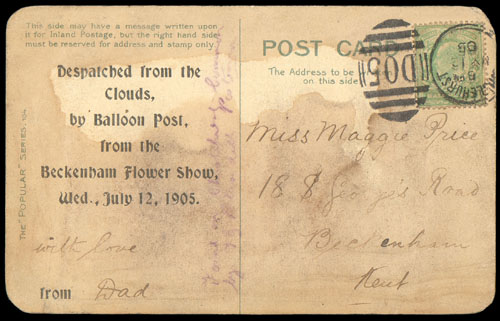 This side may have a message written upon
it for Inland Postage, but the right hand side
must be reserved for address and stamp only.
Despatched from the
Clouds,
by Balloon Post,
from the
Beckenham Flower Show,
Wed., July 12, 1905.
with love
from Dad
THE "POPULAR" SERIES.
POST CARD
The Address to be
on this side
D05
Miss Maggie Price
18 Road
Beckenham
Kent